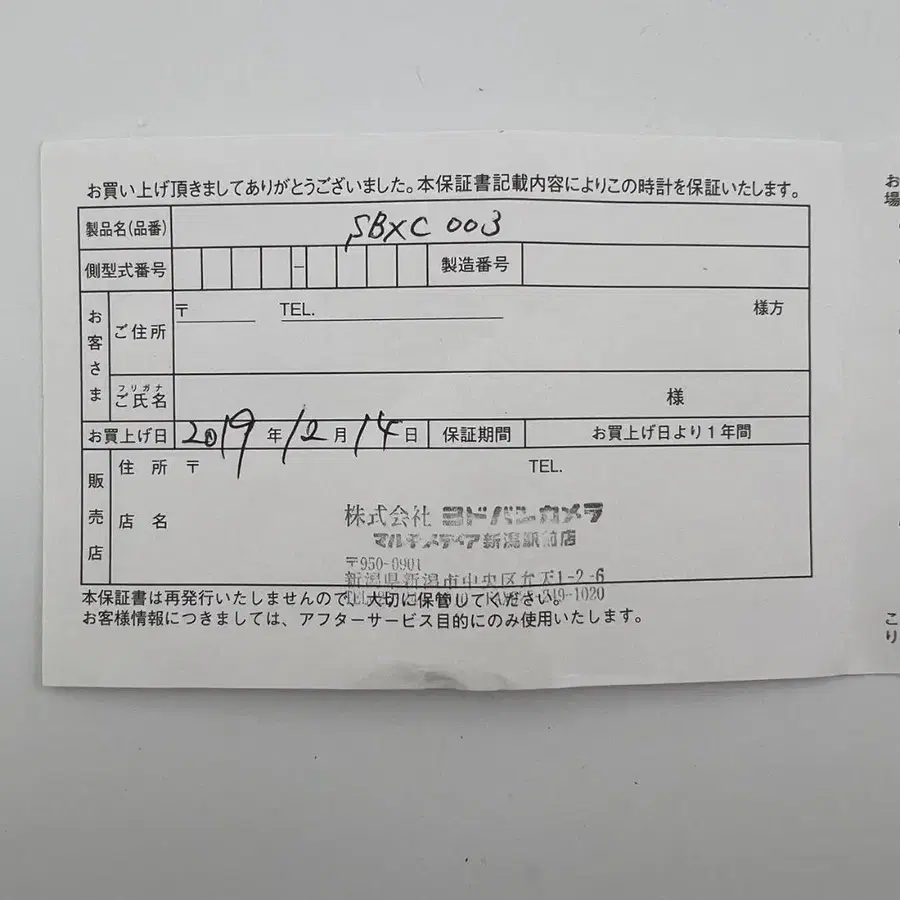 お買い上げ頂きましてありがとうございました。本保証書記載内容によりこの時計を保証いたします。
製品名(品番) SBXC 003
側型式番号 － 製造番号
お客さま
ご住所 〒 TEL. 様方
フリガナ
ご氏名 様
お買上げ日 2019年12月14日 保証期間 お買上げ日より1年間
販売店
住所 〒 TEL.
店名
株式会社 ヨドバシカメラ
マルチメディア新潟駅前店
〒950-0901
新潟県新潟市中央区弁天1-2-6
本保証書は再発行いたしませんので、大切に保管してください。
お客様情報につきましては、アフターサービス目的にのみ使用いたします。
お
場
こ
り